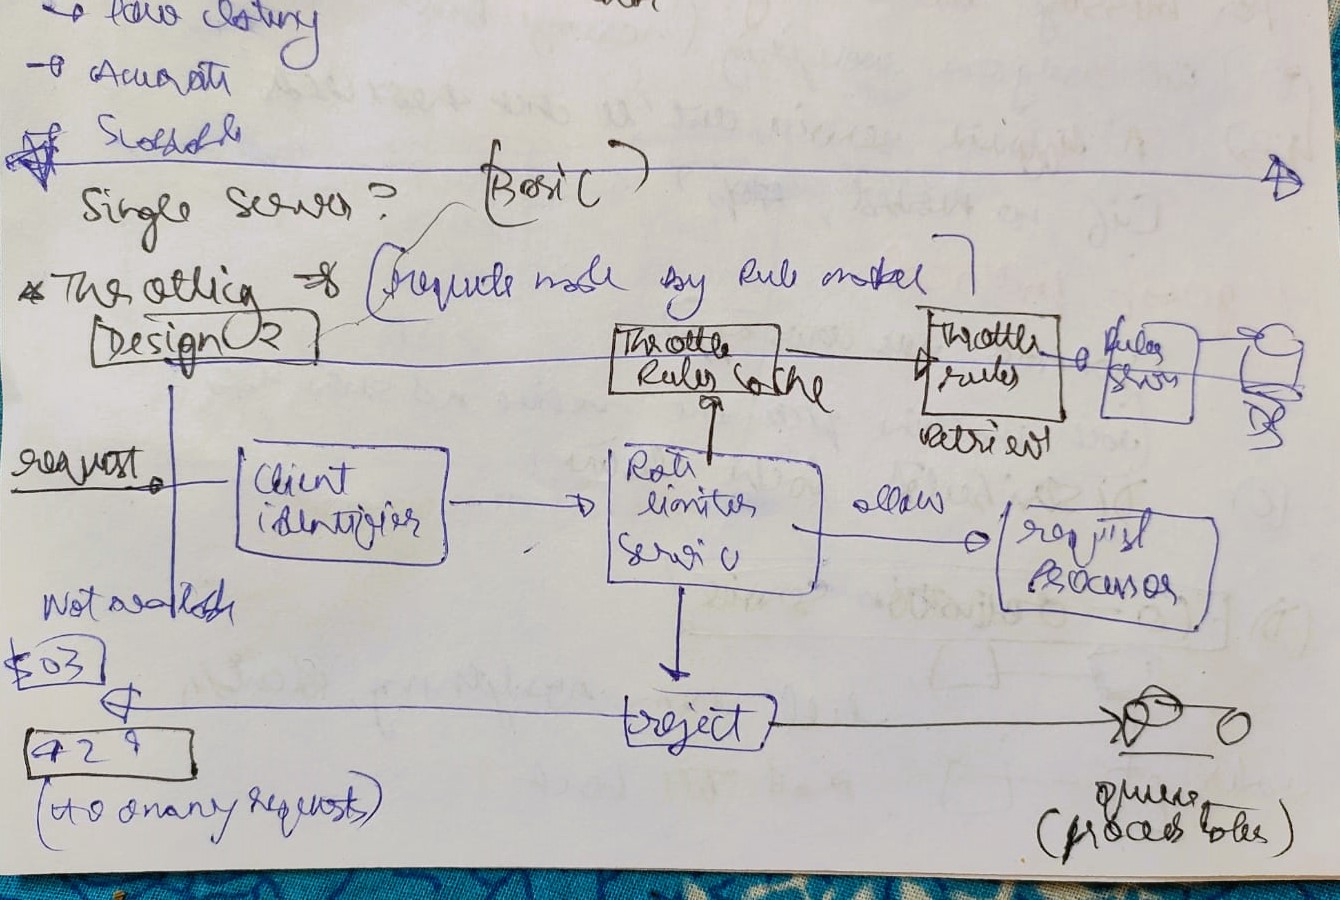 → Low latency
→ Accurate
→ Scalable
Single Server?
(Basic)
* Throttling →
by Rule
Design 02
Throttle
Rules Cache
Throttle
rules
Retriever
Rules
DB
request
Client
identifier
Rate
limiter
Service
allow
request
Processor
Not available
503
reject
429
(to many requests)
queue
(process later)